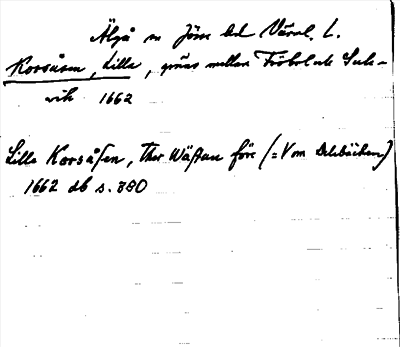 Älgå sn Jösse hd Värml. L.
Korsåsen, Lilla, gräns mellan Fröbol och Sule-
vik 1662
Lilla Korsåsen, Ther Wästan före (= V om Delebäcken)
1662 db s. 380